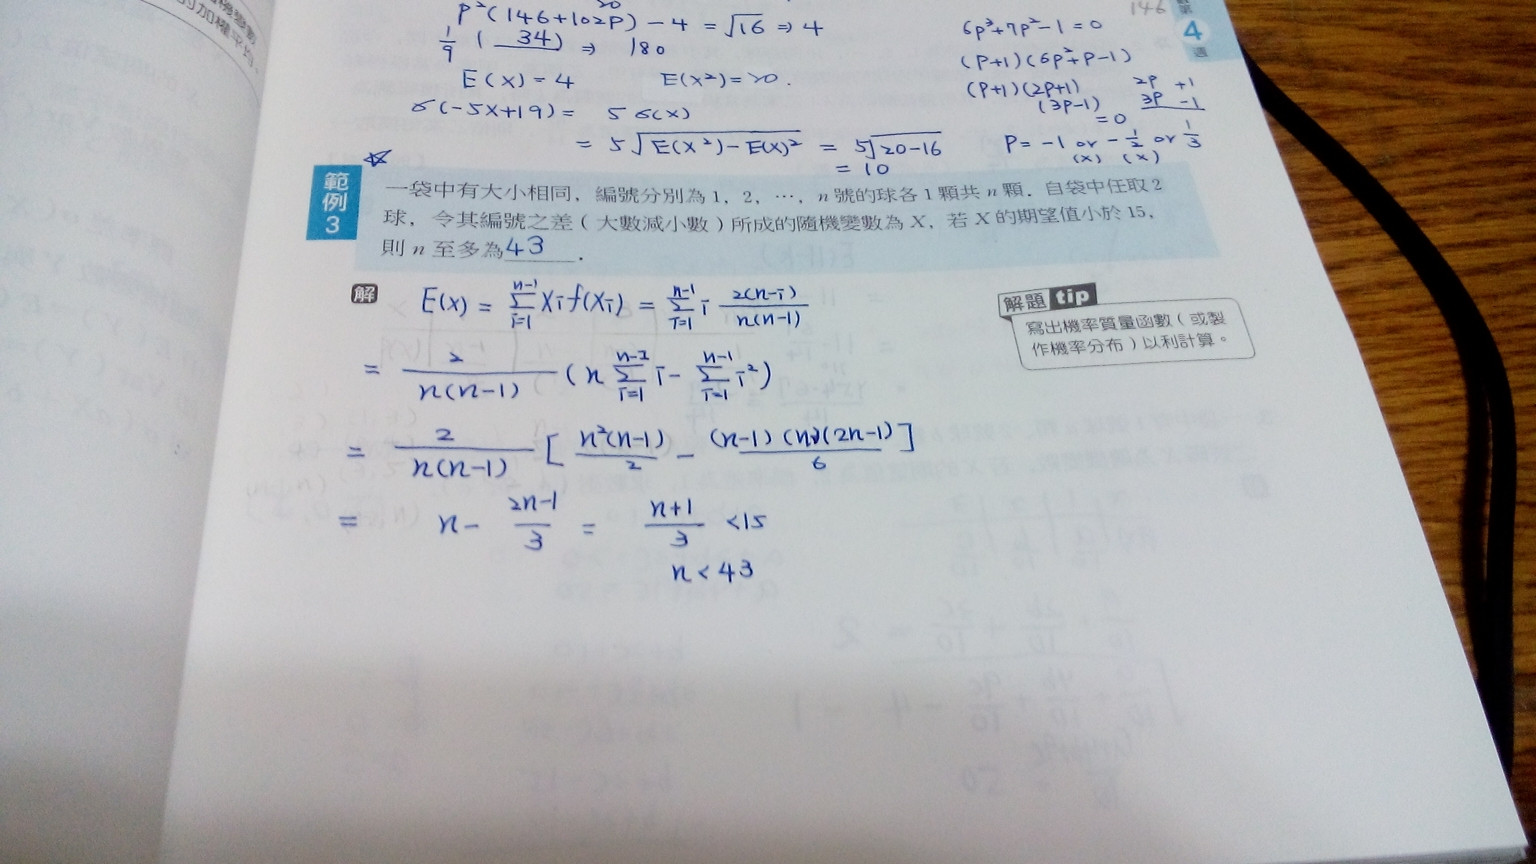 146
第
4
週
P²(146+102P) - 4 = √16 ⇒ 4
1/9 ( 34 ) ⇒ 180
E(X) = 4 E(X²) = 20 .
σ(-5X+19) = 5σ(X)
= 5√(E(X²)-E(X)²) = 5√(20-16)
= 10
6P³+7P²-1=0
(P+1)(6P²+P-1)
(P+1)(2P+1)
(3P-1)
= 0
2P +1
3P -1
P = -1 or -1/2 or 1/3
(x) (x)
範例3
一袋中有大小相同，編號分別為 1，2，…，n 號的球各 1 顆共 n 顆．自袋中任取 2
球，令其編號之差（大數減小數）所成的隨機變數為 X，若 X 的期望值小於 15，
則 n 至多為43．
解
E(x) = Σ_{i=1}^{n-1} Xi f(Xi) = Σ_{i=1}^{n-1} i 2(n-i)/n(n-1)
= 2/n(n-1) (n Σ_{i=1}^{n-1} i - Σ_{i=1}^{n-1} i²)
= 2/n(n-1) [ n²(n-1)/2 - (n-1)(n)(2n-1)/6 ]
= n - 2n-1/3 = n+1/3 <15
n < 43
解題 tip
寫出機率質量函數（或製
作機率分布）以利計算。